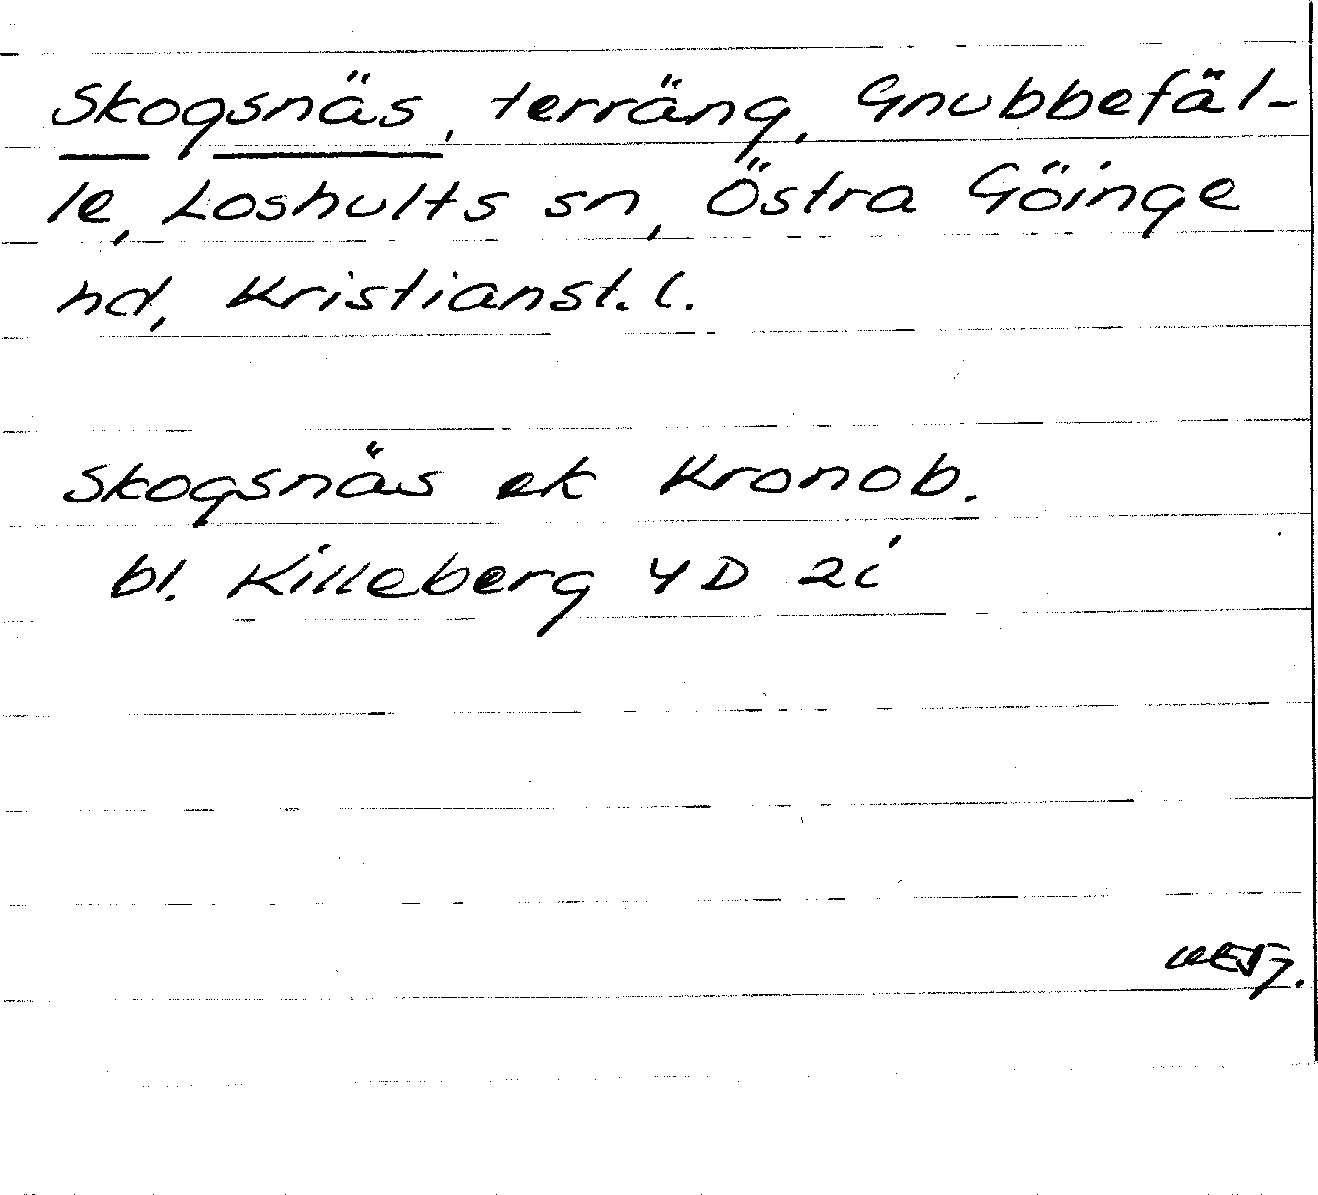 Skogsnäs, terräng, Gnubbefäl-
le, Loshults sn, Östra Göinge
hd, Kristianst. l.
Skogsnäs ek Kronob.
bl. Killeberg 4D 2i